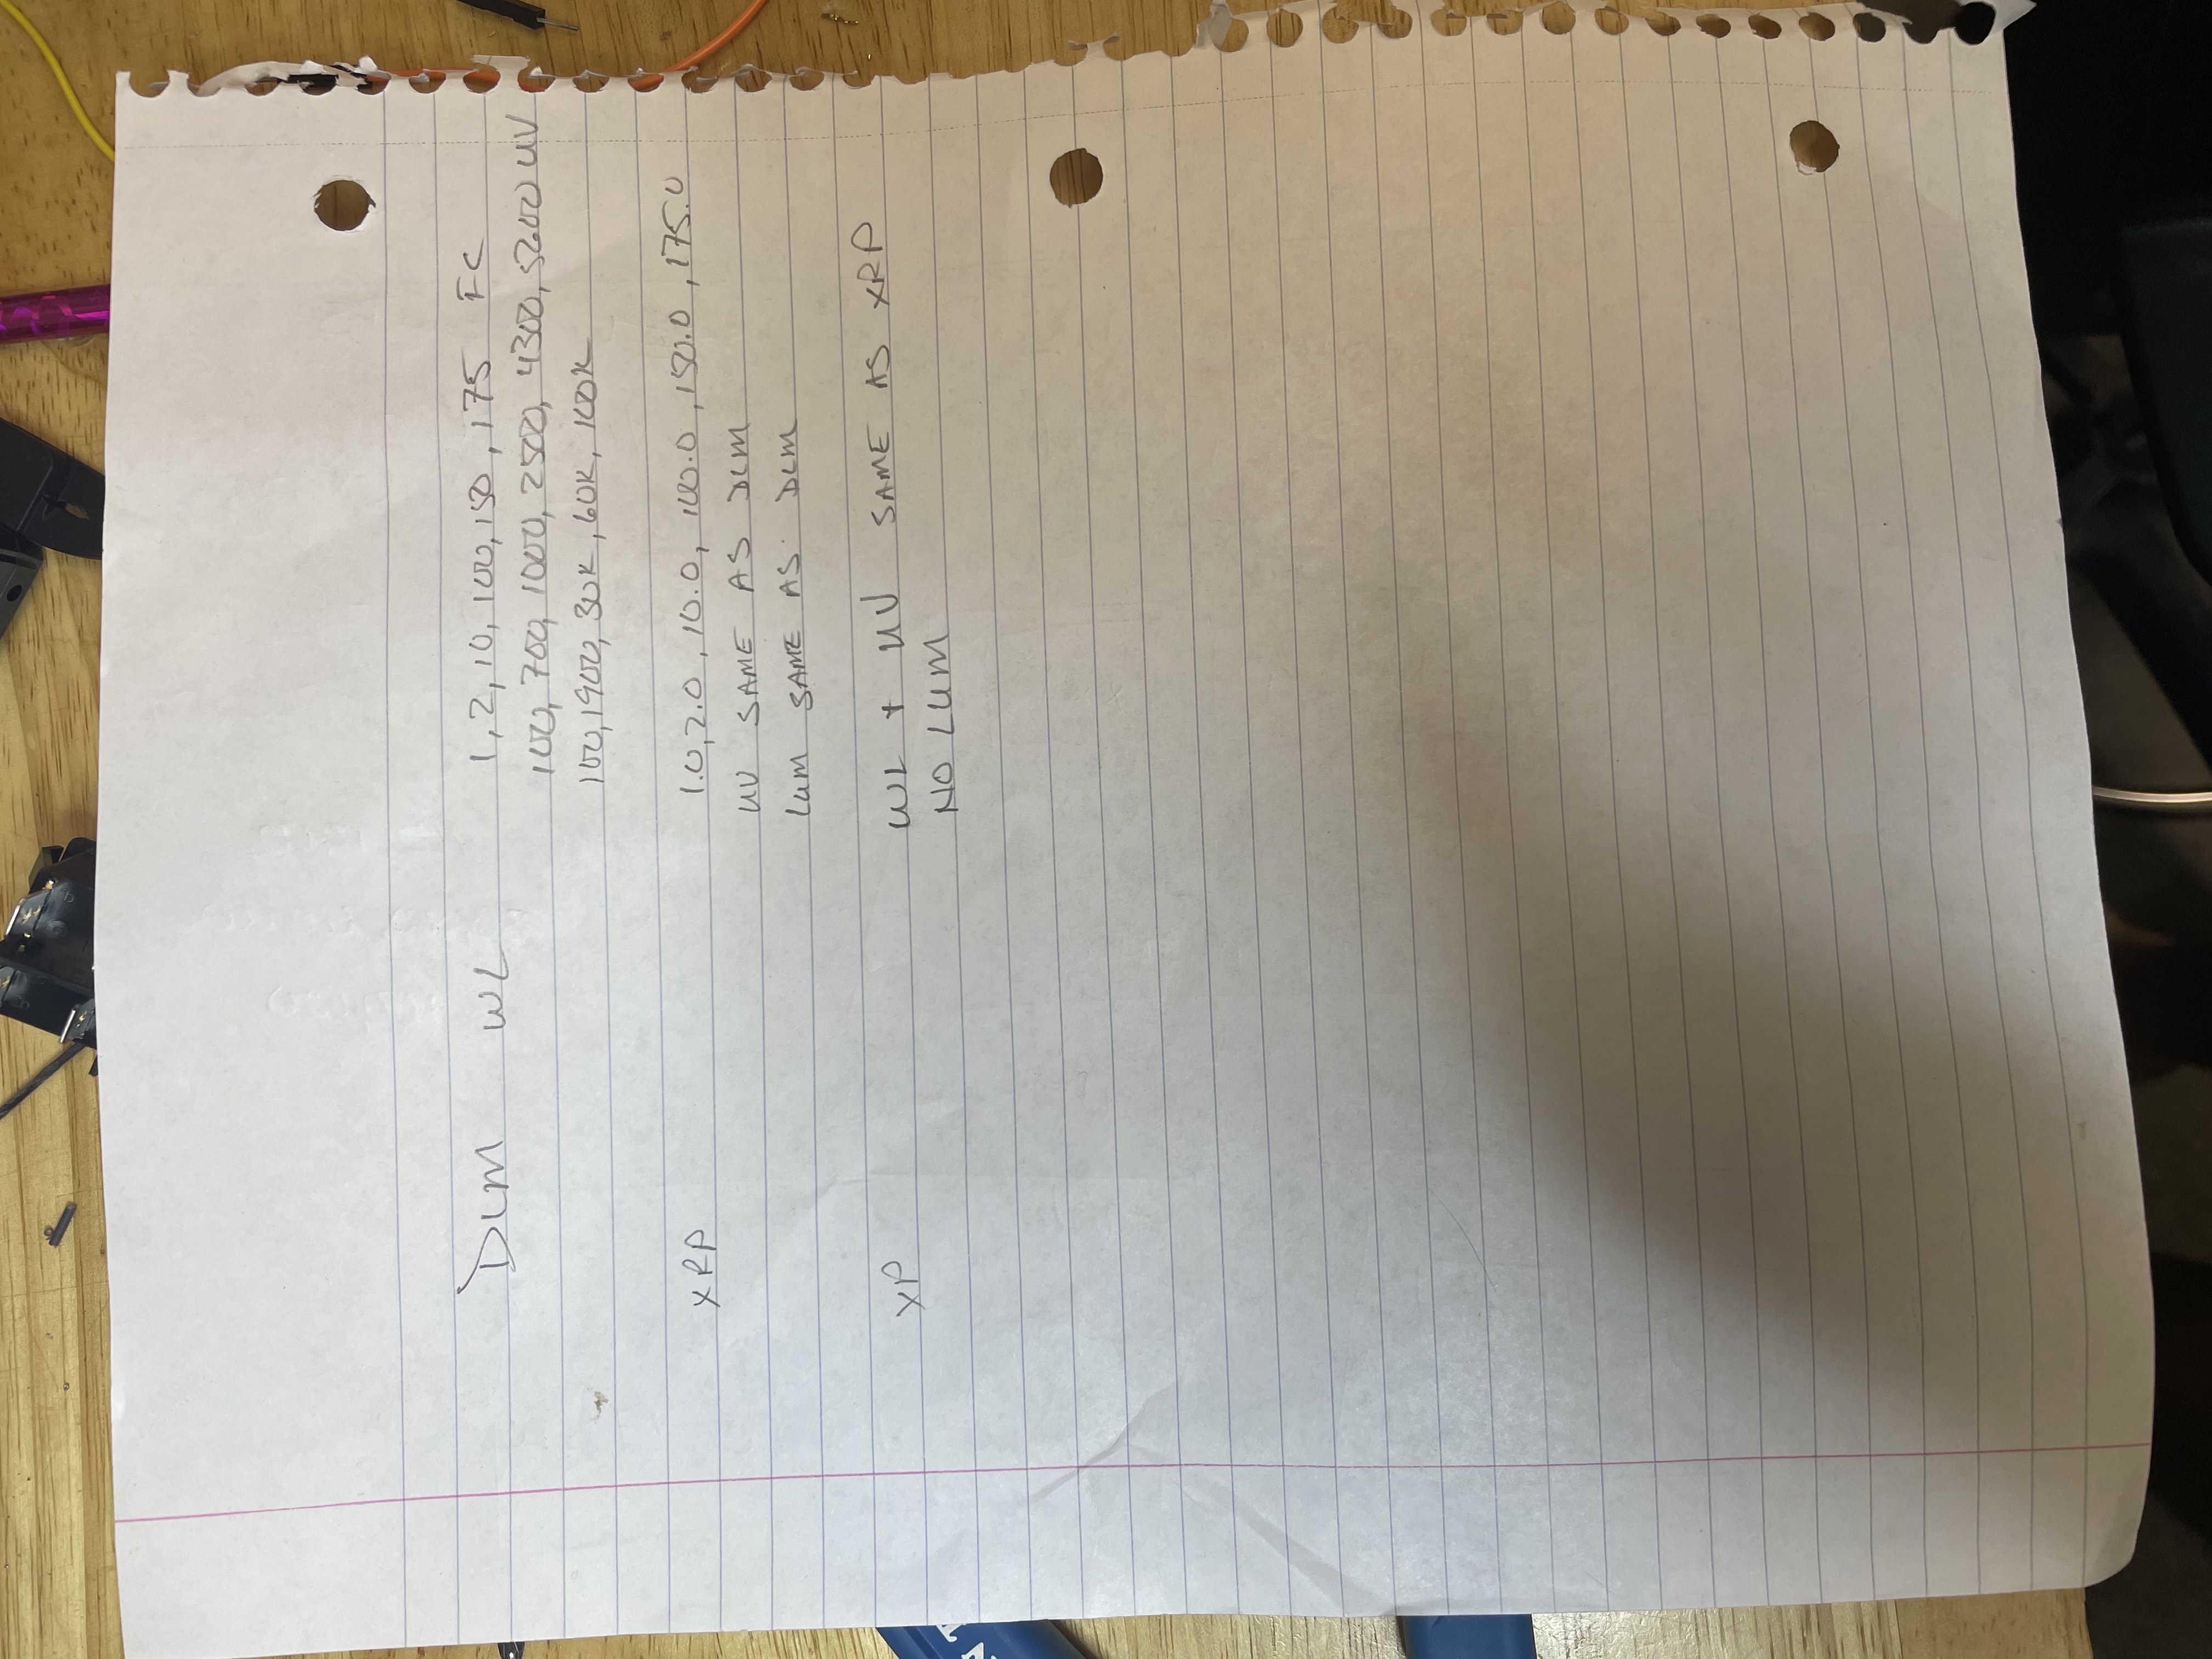 DLM WL 1, 2, 10, 100, 150, 175 FC
100, 700, 1000, 2500, 4300, 5200 UV
100, 1900, 30K, 60K, 100K
XRP 1.0, 2.0, 10.0, 100.0, 150.0, 175.0
UV SAME AS DLM
LUM SAME AS DLM
XP WL + UV SAME AS XRP
NO LUM